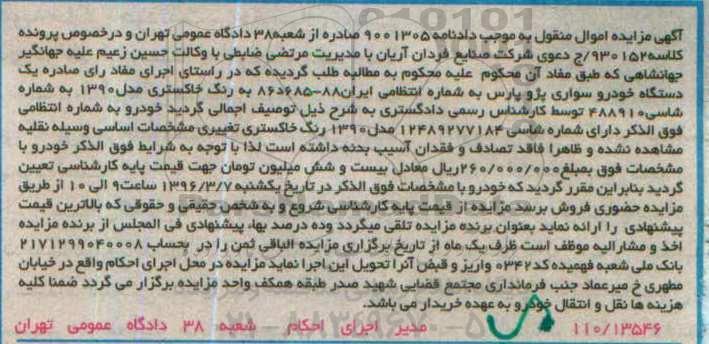 آگهی مزایده اموال منقول به موجب دادنامه ۹۰۰۱۳۰۵ صادره از شعبه۳۸ دادگاه عمومی تهران و درخصوص پرونده
کلاسه۹۳۰۱۵۲/ج دعوی شرکت صنایع فردان آریان با مدیریت مرتضی ضابطی با وکالت حسین زعیم علیه جهانگیر
جهانشاهی که طبق مفاد آن محکوم علیه محکوم به مطالبه طلب گردیده که در راستای اجرای مفاد رای صادره یک
دستگاه خودرو سواری پژو پارس به شماره انتظامی ایران۸۸-۶۸۵د۸۶ به رنگ خاکستری مدل۱۳۹۰ به شماره
شاسی۴۸۸۹۱۰ توسط کارشناس رسمی دادگستری به شرح ذیل توصیف اجمالی گردید خودرو به شماره انتظامی
فوق الذکر دارای شماره شاسی ۱۲۴۸۹۲۷۷۱۸۴ مدل۱۳۹۰ رنگ خاکستری تغییری مشخصات اساسی وسیله نقلیه
مشاهده نشده و ظاهرا فاقد تصادف و فقدان آسیب بدنه داشته است لذا با توجه به شرایط فوق الذکر خودرو با
مشخصات فوق بمبلغ۲۶۰/۰۰۰/۰۰۰ریال معادل بیست و شش میلیون تومان جهت قیمت پایه کارشناسی تعیین
گردید بنابراین مقرر گردید که خودرو با مشخصات فوق الذکر در تاریخ یکشنبه ۱۳۹۶/۳/۷ ساعت۹ الی ۱۰ از طریق
مزایده حضوری فروش برسد مزایده از قیمت پایه کارشناسی شروع و به شخص حقیقی و حقوقی که بالاترین قیمت
پیشنهادی را ارائه نماید بعنوان برنده مزایده تلقی میگردد وده درصد بها، پیشنهادی فی المجلس از برنده مزایده
اخذ و مشارالیه موظف است ظرف یک ماه از تاریخ برگزاری مزایده الباقی ثمن را در بحساب ۲۱۷۱۲۹۹۰۴۰۰۰۸
بانک ملی شعبه فهمیده کد۰۳۴۲ واریز و قبض آنرا تحویل این اجرا نماید مزایده در محل اجرای احکام واقع در خیابان
مطهری خ میرعماد جنب فرمانداری مجتمع قضایی شهید صدر طبقه همکف واحد مزایده برگزار می گردد ضمنا کلیه
هزینه ها نقل و انتقال خودرو به عهده خریدار می باشد.
۱۱۰/۱۳۵۴۶ مدیر اجرای احکام شعبه ۳۸ دادگاه عمومی تهران